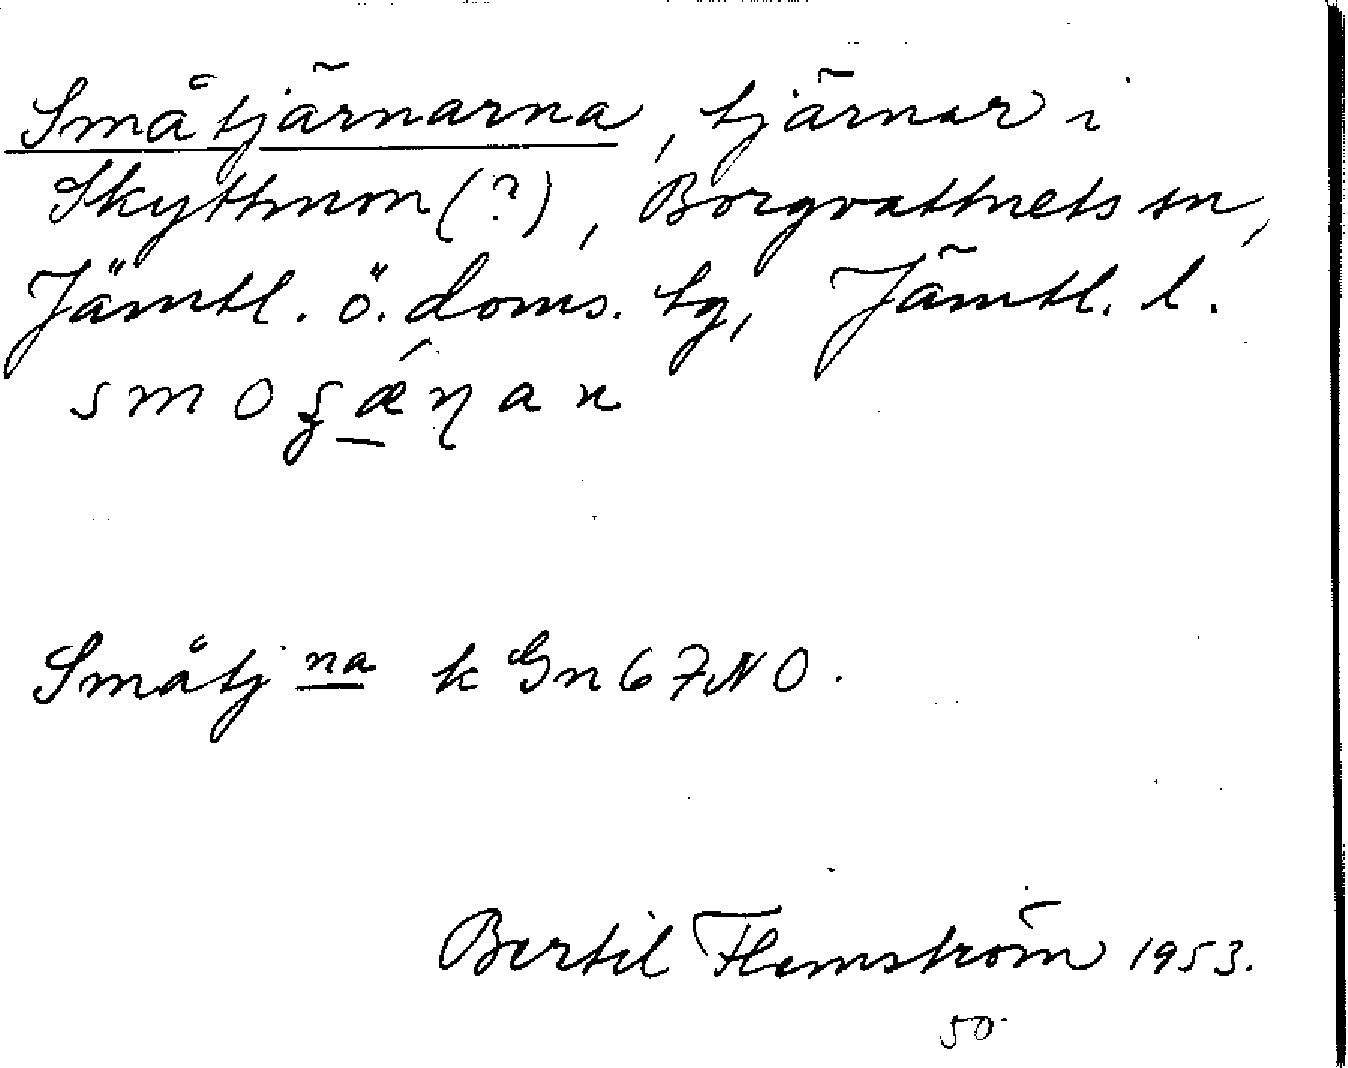 Småtjärnarna, tjärnar i
Skyttmon (?), Borgvattnets sn,
Jämtl. ö. doms. tg, Jämtl. l.
Småtj na k Gn 67 NO.
Bertil Flemström 1953.
50